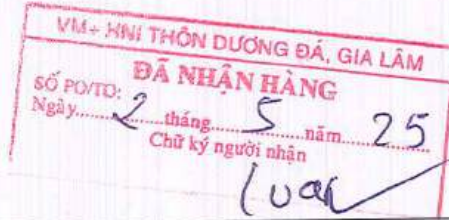 VM+ HNI THÔN DƯƠNG ĐÁ, GIA LÂM
ĐÃ NHẬN HÀNG
SỐ PO/TO:
Ngày......2......tháng......5......năm......25
Chữ ký người nhận